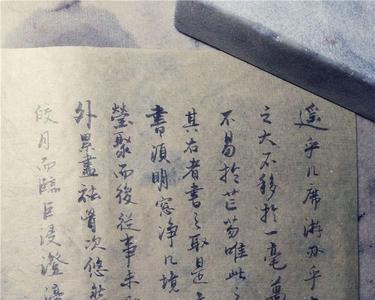 遥乎几席游
之大不移於一毫萬
不易於芒芴唯此
其右者書之取是
書須明窓净几境
瑩聚而後從事未
外累盡祛胷次悠然
皎月而臨巨浸澄